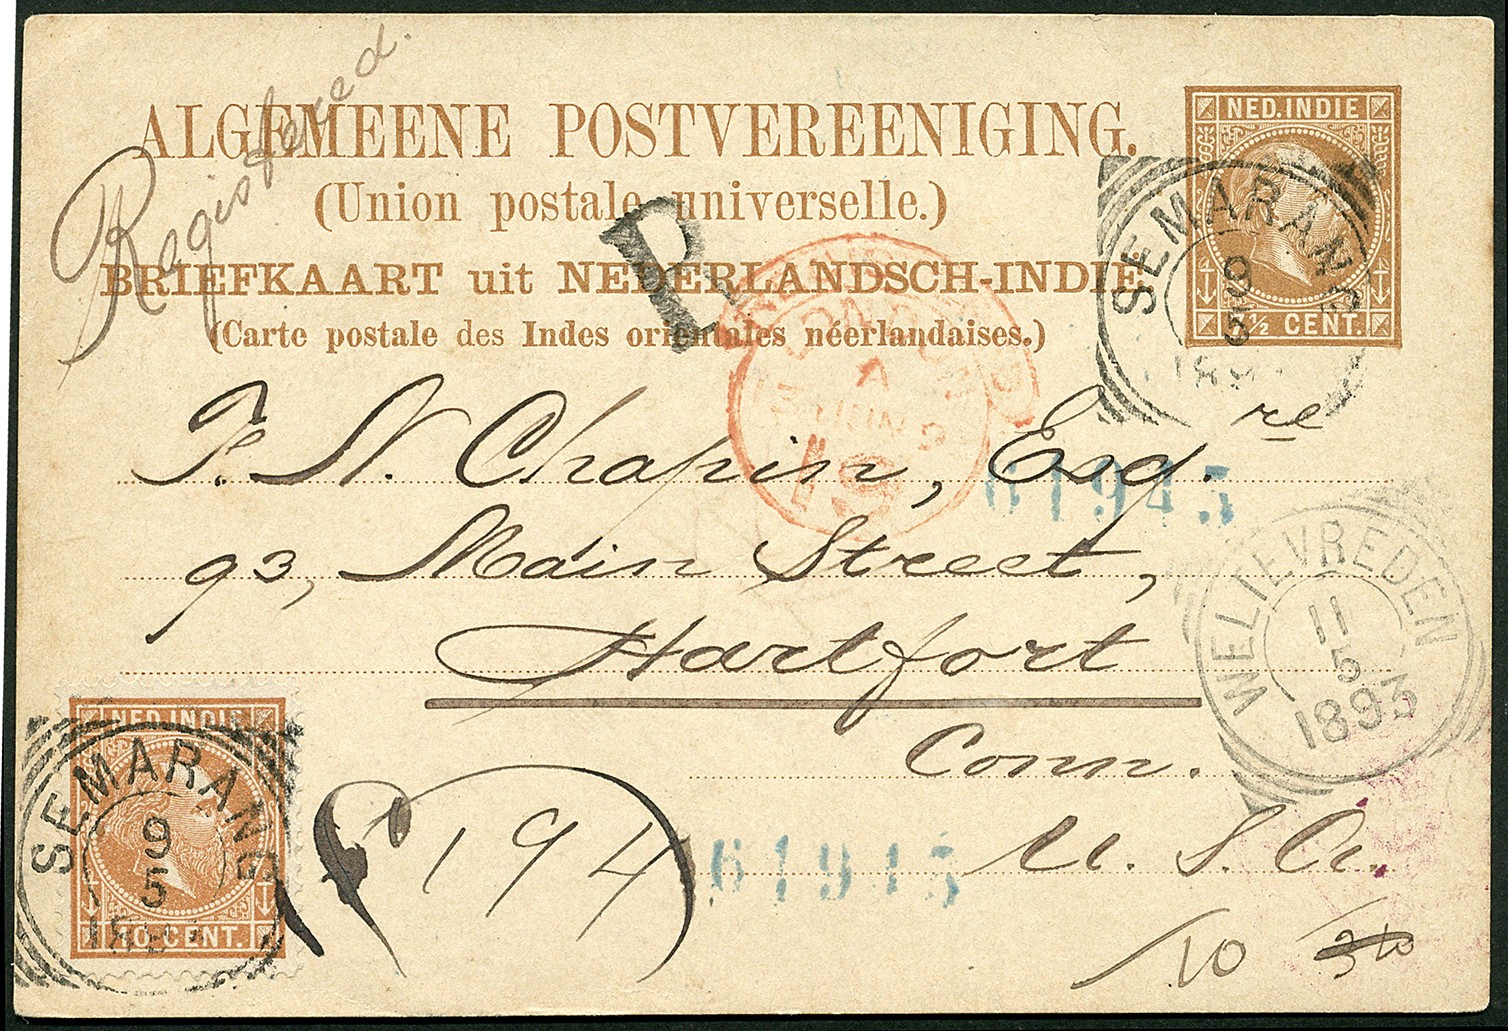 Registered.
ALGEMEENE POSTVEREENIGING.
(Union postale universelle.)
BRIEFKAART uit NEDERLANDSCH-INDIE
(Carte postale des Indes orientales néerlandaises.)
NED. INDIE
½ CENT.
SEMARANG
9
5
R
LONDON
A
JUN
F. N. Chapin, Esq.re
61945
93, Main Street,
Hartfort
Conn.
U. S. A.
WELTEVREDEN
11
5
1893
NED. INDIE
10 CENT.
SEMARANG
9
5
194
61945
10